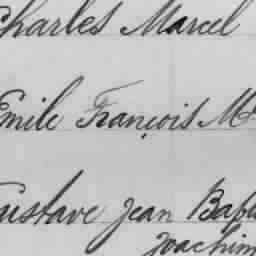 Charles Marcel
Emile François M
Gustave Jean Bap
Joachim